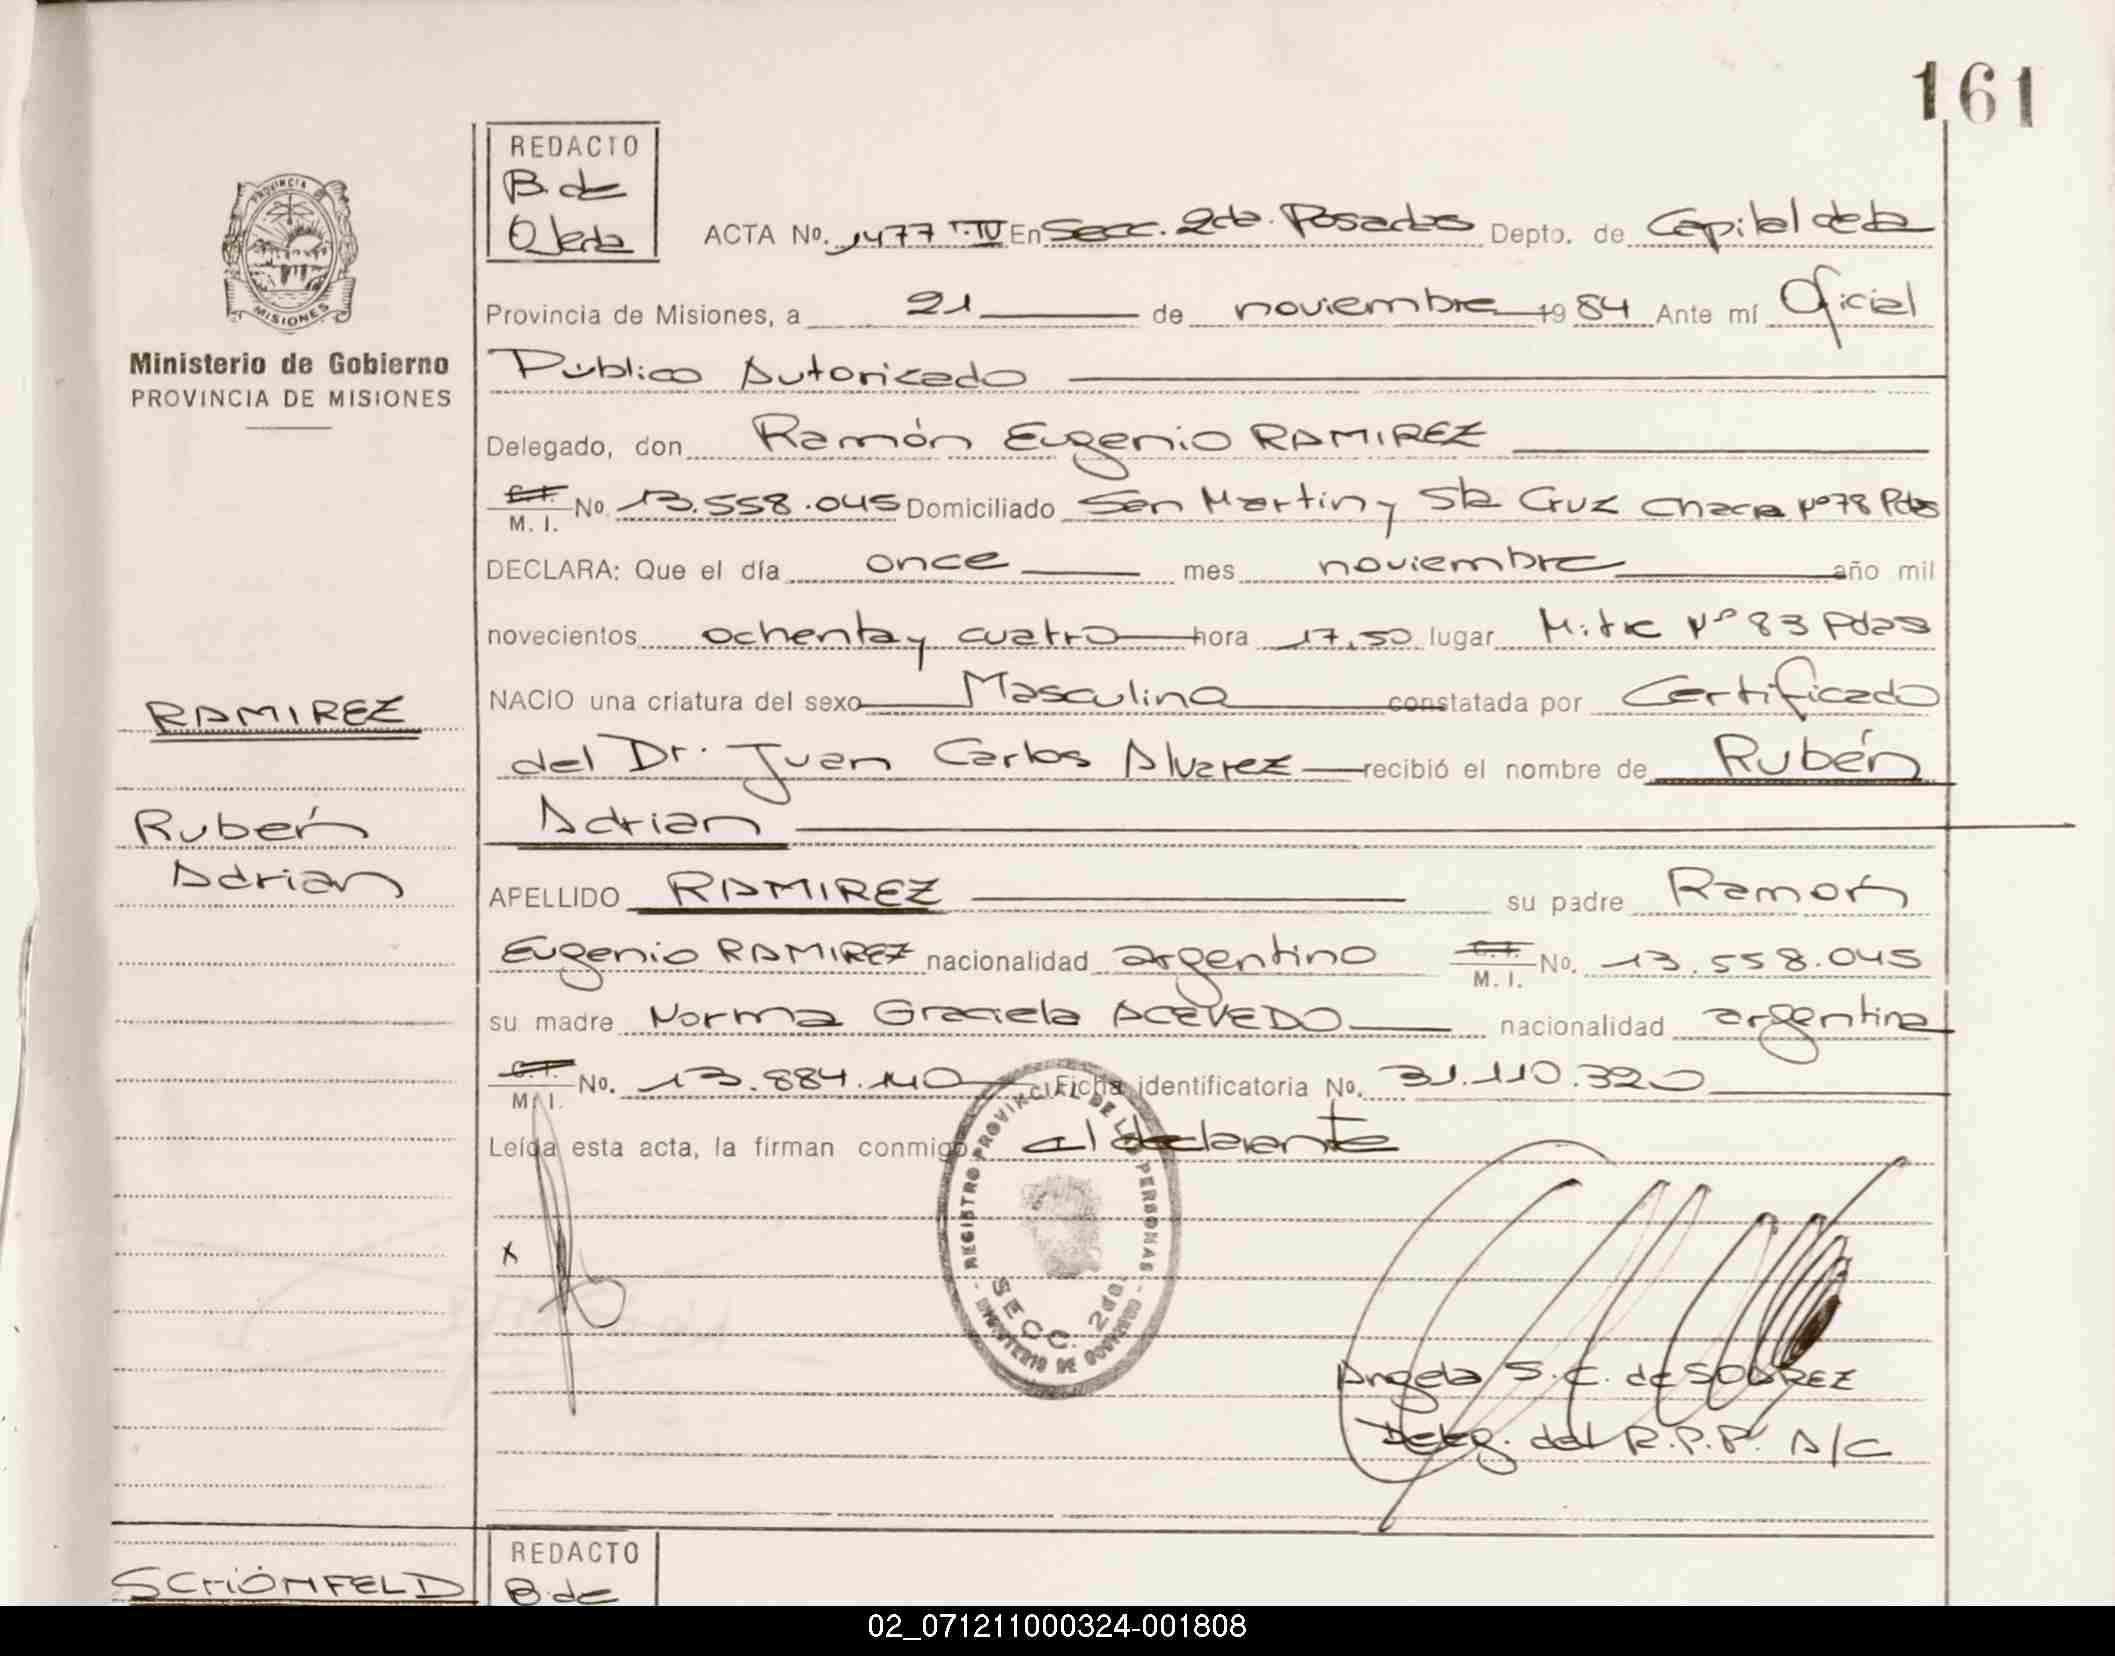 161
REDACTO
B. de
Ojeda
ACTA No. 1477 T.IV En Secc. 2da. Posadas Depto. de Capital de la
Provincia de Misiones, a 21 de noviembre 1984 Ante mí Oficial
Público Autorizado
Delegado, don Ramón Eugenio RAMIREZ
C.I. M. I. No. 13.558.045 Domiciliado San Martin y Sta Cruz Chacra Nº 78 Pdas
DECLARA: Que el día once mes noviembre año mil
novecientos ochenta y cuatro hora 17,50 lugar Mitre Nº 83 Pdas
NACIO una criatura del sexo Masculino constatada por Certificado
del Dr. Juan Carlos Alvarez recibió el nombre de Rubén
Adrian
APELLIDO RAMIREZ su padre Ramón
Eugenio RAMIREZ nacionalidad argentino C.I. M. I. No. 13.558.045
su madre Norma Graciela ACEVEDO nacionalidad argentina
C.I. M. I. No. 13.884.140 Ficha identificatoria No. 31.110.320
Leída esta acta, la firman conmigo el declarante
x
REGISTRO PROVINCIAL DE LAS PERSONAS
SECC. 2da.
MINISTERIO DE GOBIERNO
Angela S. C. de SOAREZ
Deleg. del R.P.P. A/C
PROVINCIA
MISIONES
Ministerio de Gobierno
PROVINCIA DE MISIONES
RAMIREZ
Rubén
Adrian
SCHÖNFELD
REDACTO
B. de
02_071211000324-001808